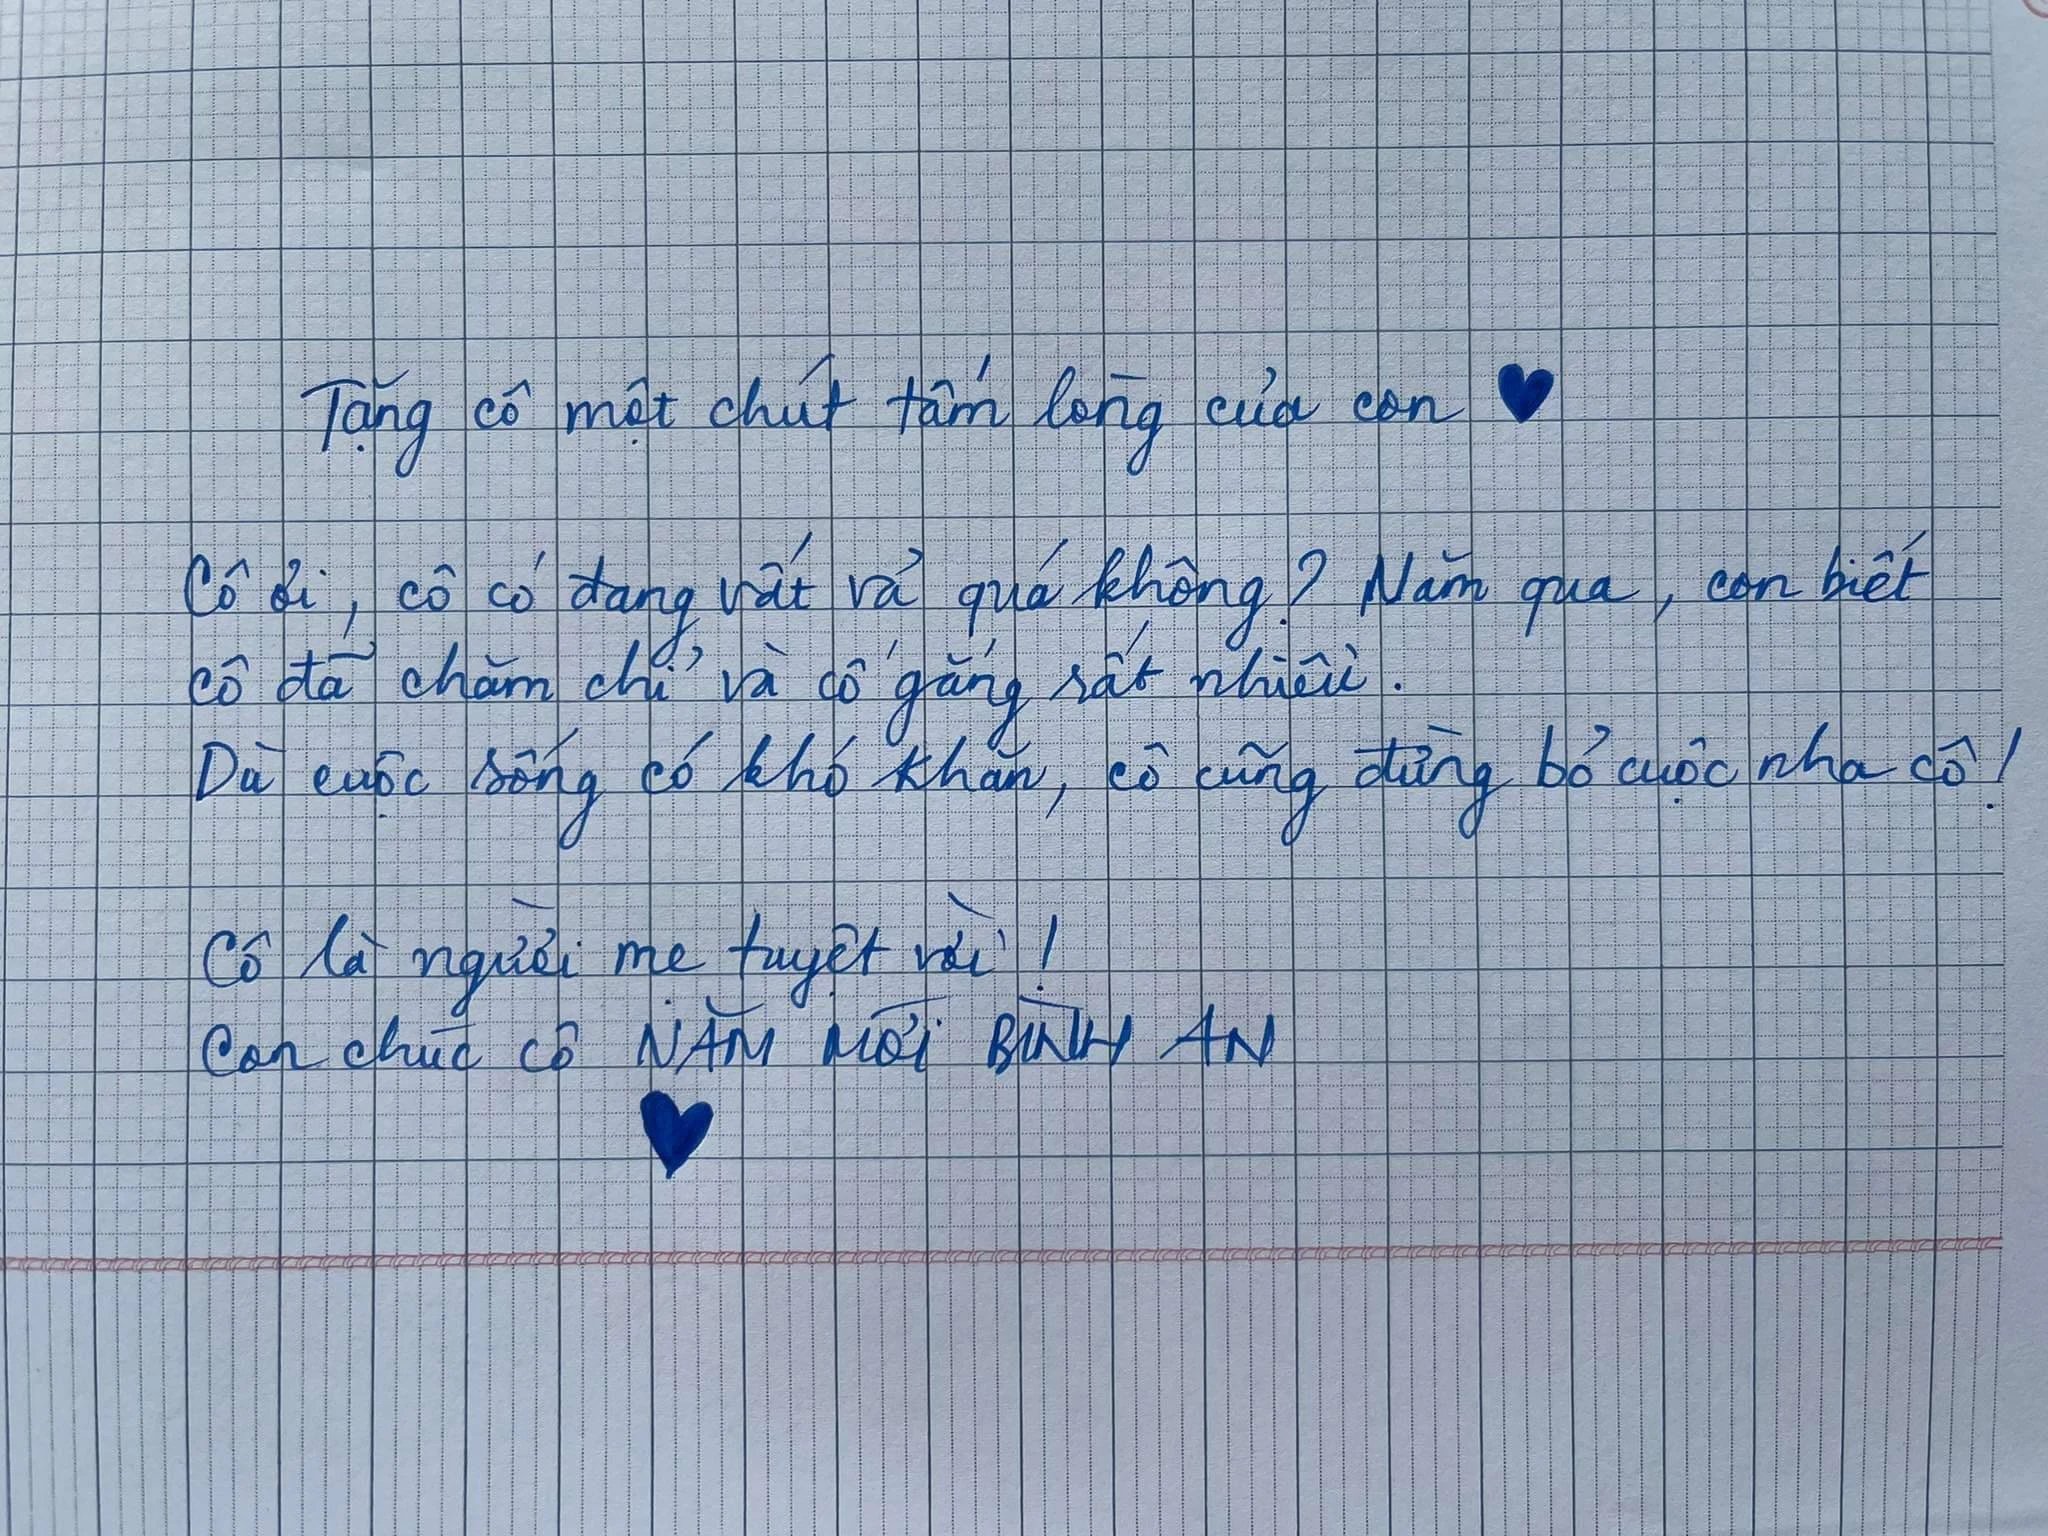 Tặng cô một chút tấm lòng của con
Cô ơi, cô có đang vất vả quá không? Năm qua, con biết
cô đã chăm chỉ và cố gắng rất nhiều.
Dù cuộc sống có khó khăn, cô cũng đừng bỏ cuộc nha cô!
Cô là người mẹ tuyệt vời!
Con chúc cô NĂM MỚI BÌNH AN